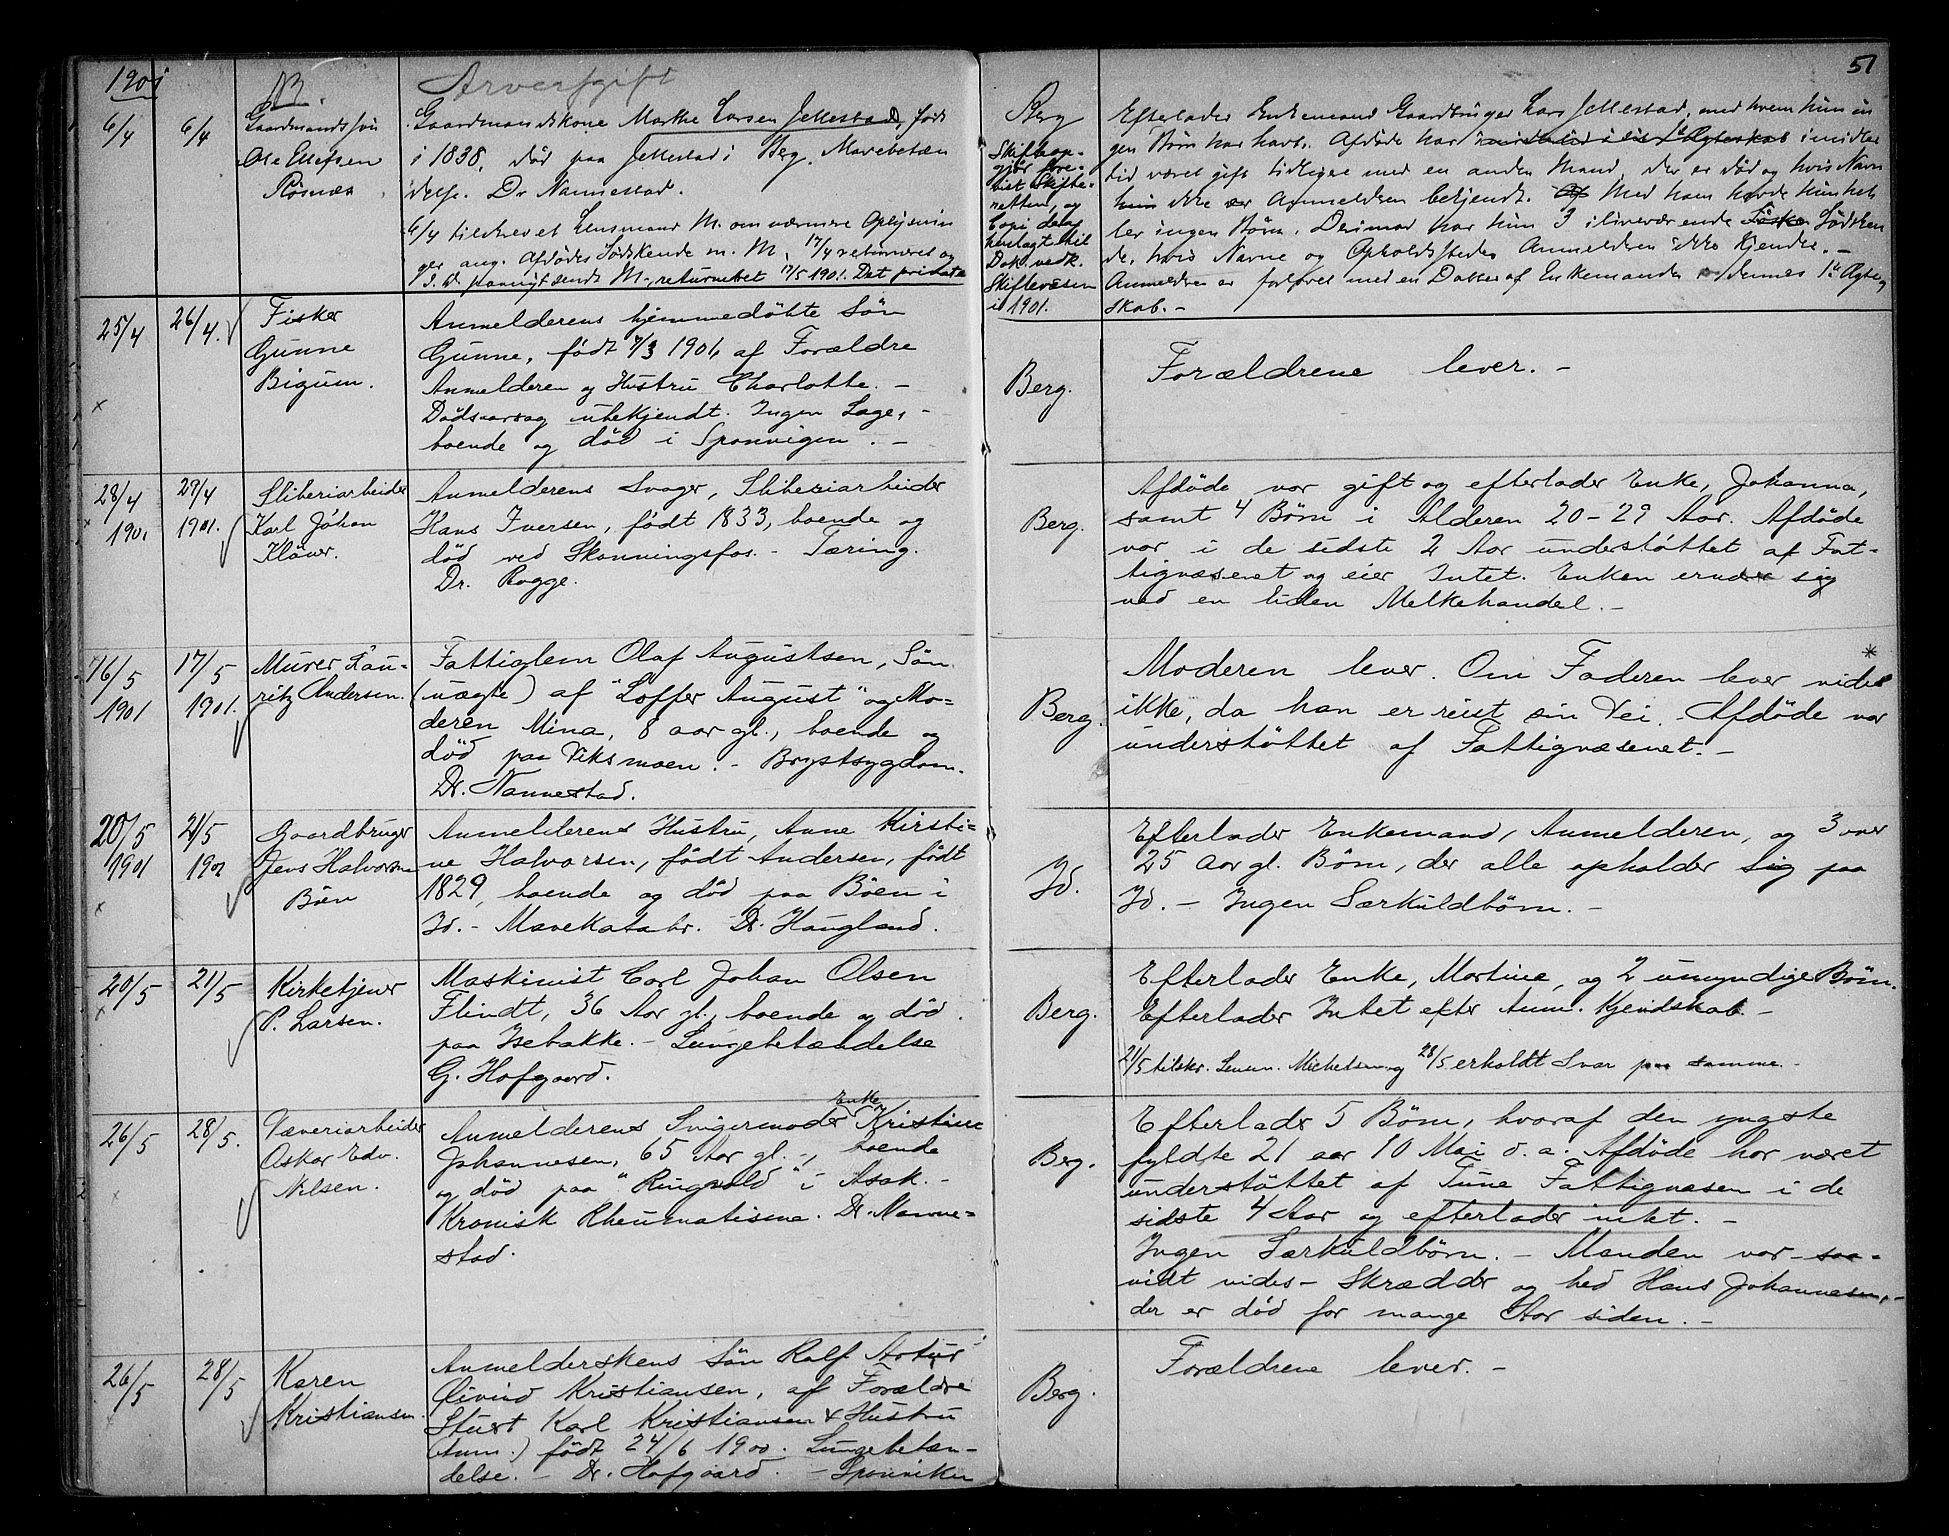 1901
51
B.
Arveafgift
6/4
6/4
Gaardmandssøn
Ole Ellefsen
Rösnæs
Gaardmandskone Marthe Larsen Jellestad, født
i 1838, død paa Jellestad i Berg. Mavebetæn
delse. Dr Nannestad.
6/4 tilskrevet Lensmand M. om nærmere Oplysnin
ger ang. Afdødes Sødskende m. M, 17/4 returneret og
s. D. paanyt sendt M., returneret 17/5 1901. Det private
Berg
Skifteop-
gjør fore-
vist Skifte-
retten, og
Copi deraf
henlagt til
Dok. vedk.
Skiftevæsen
i 1901.
Efterlader Enkemand Gaardbruger Lars Jellestad, med hvem hun in
gen Børn har havt. Afdøde har imidler
tid været gift tidligere med en anden Mand, der er død og hvis Navn
ikke er Anmelderen bekjendt. Med ham havde hun hel
ler ingen Børn. Derimod har hun 3 iliveværende Sødsken
de, hvis Navne og Opholdssteder Anmelderen ikke kjender. -
Anmelderen er forlovet med en Datter af Enkemanden i dennes 1ste Ægte
skab. -
25/4
26/4.
Fisker
Gunne
Bigum.
Anmelderens hjemmedöbte Sön
Gunne, født 7/3 1901, af Forældre
Anmelderen og Hustru Charlotte. -
Dødsaarsag ubekjendt. Ingen Læge, -
boende og död i Sponvigen. -
Berg.
Forældrene lever. -
28/4
1901
29/4
1901.
Sliberiarbeider
Karl Johan
Klöver.
Anmelderens Svoger, Sliberiarbeider
Hans Iversen, født 1833, boende og
död ved Skonningsfos. - Tæring.
Dr. Rogge.
Berg.
Afdöde var gift og efterlader Enke, Johanna,
samt 4 Börn i Alderen 20-29 Aar. Afdöde
var i de sidste 2 Aar understöttet af Fat-
tigvæsenet og eier Intet. Enken ernærer sig
ved en liden Melkehandel. -
16/5
1901
17/5
1901.
Murer Lau-
ritz Andersen.
Fattiglem Olaf Augustsen, Sön
(uægte) af "Loffer August" og Mo-
deren Mina, 8 aar gl., boende og
död paa Viksmoen. - Brystsygdom.
Dr. Nannestad.
Berg.
Moderen lever. Om Faderen lever vides
ikke, da han er reist sin Vei. - Afdöde var
understöttet af Fattigvæsenet. -
20/5
1901
21/5
1901
Gaardbruger
Jens Halvorsen
Böen
Anmelderens Hustru, Anne Kirsti-
ne Halvorsen, født Andersen, født
1829, boende og död paa Böen i
Id. - Mavekatahr. Dr. Haugland.
Id.
Efterlader Enkemand, Anmelderen, og 3 over
25 Aar gl. Börn, der alle opholder sig paa
Id. - Ingen Særkuldbörn. -
20/5
21/5
Kirketjener
P. Larsen.
Maskinist Carl Johan Olsen
Flindt, 36 Aar gl., boende og död
paa Isebakke. - Lungebetændelse
G. Hofgaard.
Berg.
Efterlader Enke, Martine, og 2 umyndige Börn.
Efterlader Intet efter Anm. Kjendskab -
21/5 tilskr. Lensm. Michelsen og 28/5 erholdt Svar paa samme. -
26/5
28/5.
Væveriarbeider
Oskar Edv.
Nilsen.
Anmelderens Svigermoder Enke Kristine
Johannesen, 65 Aar gl. -, boende
og död paa "Ringvold" i Asak. -
Kronisk Rheumatisme. Dr. Nanne-
stad.
Berg.
Efterlader 5 Börn, hvoraf den yngste
fyldte 21 aar 10 Mai d. a. Afdöde har været
understöttet af Tune Fattigvæsen i de
sidste 4 Aar og efterlader intet. -
Ingen Særkuldbörn. - Manden var - saa-
vidt vides - Skrædder og hed Hans Johannesen, -
der er död for mange Aar siden. -
26/5
28/5
Karen
Kristiansen.
Anmelderskens Sön Ralf Artur
Öivind Kristiansen, af Forældre
Stuert Karl Kristiansen & Hustru
(Anm.) födt 24/6 1900. Lungebetæn-
delse. - Dr. Hofgaard. - Sponviken
Berg.
Forældrene lever. -